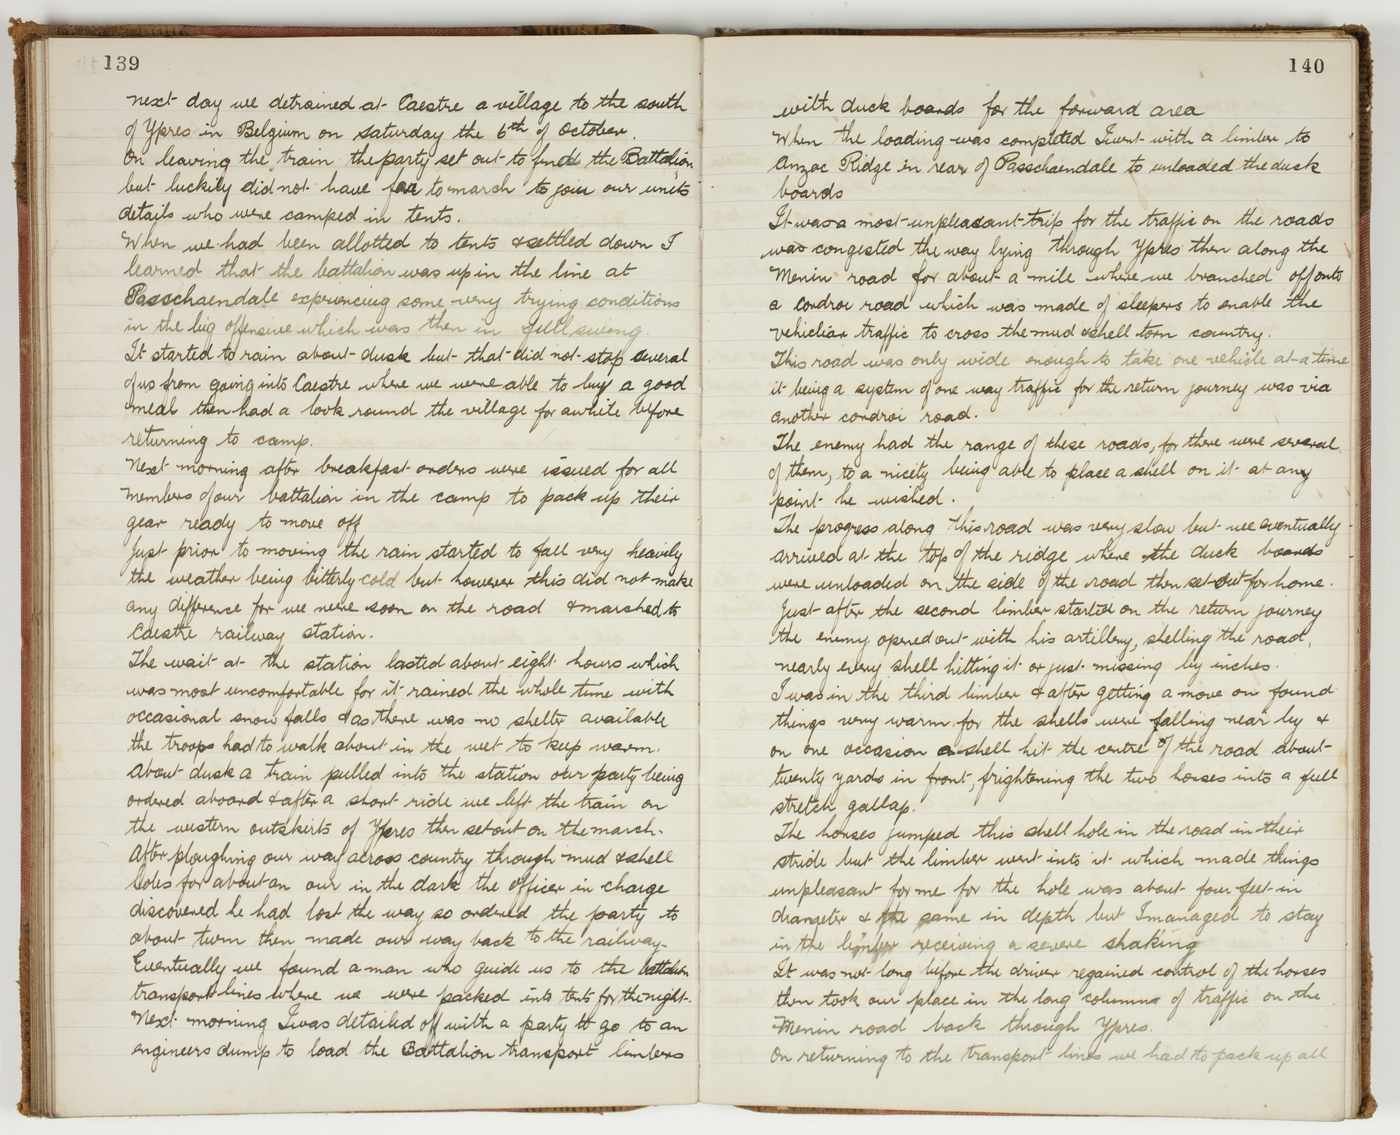 139
next day we detrained at Caestre a village to the south
of Ypres in Belgium on Saturday the 6th of October.
On leaving the train the party set out to find the Battalion
but luckily did not have far to march to join our units
details who were camped in tents.
When we had been allotted to tents & settled down I
learned that the battalion was up in the line at
Passchaendale experiencing some very trying conditions
in the big offensive which was then in full swing.
It started to rain about dusk but that did not stop several
of us from going into Caestre where we were able to buy a good
meal then had a look round the village for awhile before
returning to camp.
Next morning after breakfast orders were issued for all
members of our battalion in the camp to pack up their
gear ready to move off
Just prior to moving the rain started to fall very heavily
the weather being bitterly cold but however this did not make
any difference for we were soon on the road & marched to
Caestre railway station.
The wait at the station lasted about eight hours which
was most uncomfortable for it rained the whole time with
occasional snow falls & as there was no shelter available
the troops had to walk about in the wet to keep warm.
About dusk a train pulled into the station our party being
ordered aboard & after a short ride we left the train on
the western outskirts of Ypres then set out on the march.
After ploughing our way across country through mud & shell
holes for about an our in the dark the officer in charge
discovered he had lost the way so ordered the party to
about turn then made our way back to the railway.
Eventually we found a man who guide us to the battalion
transport lines where we were packed into tents for the night.
Next morning I was detailed off with a party to go to an
engineers dump to load the Battalion transport limbers
140
with duck boards for the forward area
When the loading was completed I went with a limber to
Anzac Ridge in rear of Passchaendale to unloaded the duck
boards
It was a most unpleasant trip for the traffic on the roads
was congested the way lying through Ypres then along the
Menin road for about a mile where we branched off onto
a cordroi road which was made of sleepers to enable the
vehicliar traffic to cross the mud & shell torn country.
This road was only wide enough to take one vehicle at a time
it being a system of one way traffic for the return journey was via
another cordroi road.
The enemy had the range of these roads, for there were several
of them, to a nicety being able to place a shell on it at any
point he wished.
The progress along this road was very slow but we eventually
arrived at the top of the ridge where the duck boards
were unloaded on the side of the road then set out for home.
Just after the second limber started on the return journey
the enemy opened out with his artillery, shelling the road,
nearly every shell hitting it or just missing by inches.
I was in the third limber & after getting a move on found
things very warm for the shells were falling near by &
on one occasion a shell hit the centre of the road about
twenty yards in front, frightening the two horses into a full
stretch gallap.
The horses jumped this shell hole in the road in their
stride but the limber went into it which made things
unpleasant for me for the hole was about four feet in
diameter & the same in depth but I managed to stay
in the limber receiving a severe shaking
It was not long before the driver regained control of the horses
then took our place in the long columns of traffic on the
Menin road back through Ypres.
On returning to the transport lines we had to pack up all